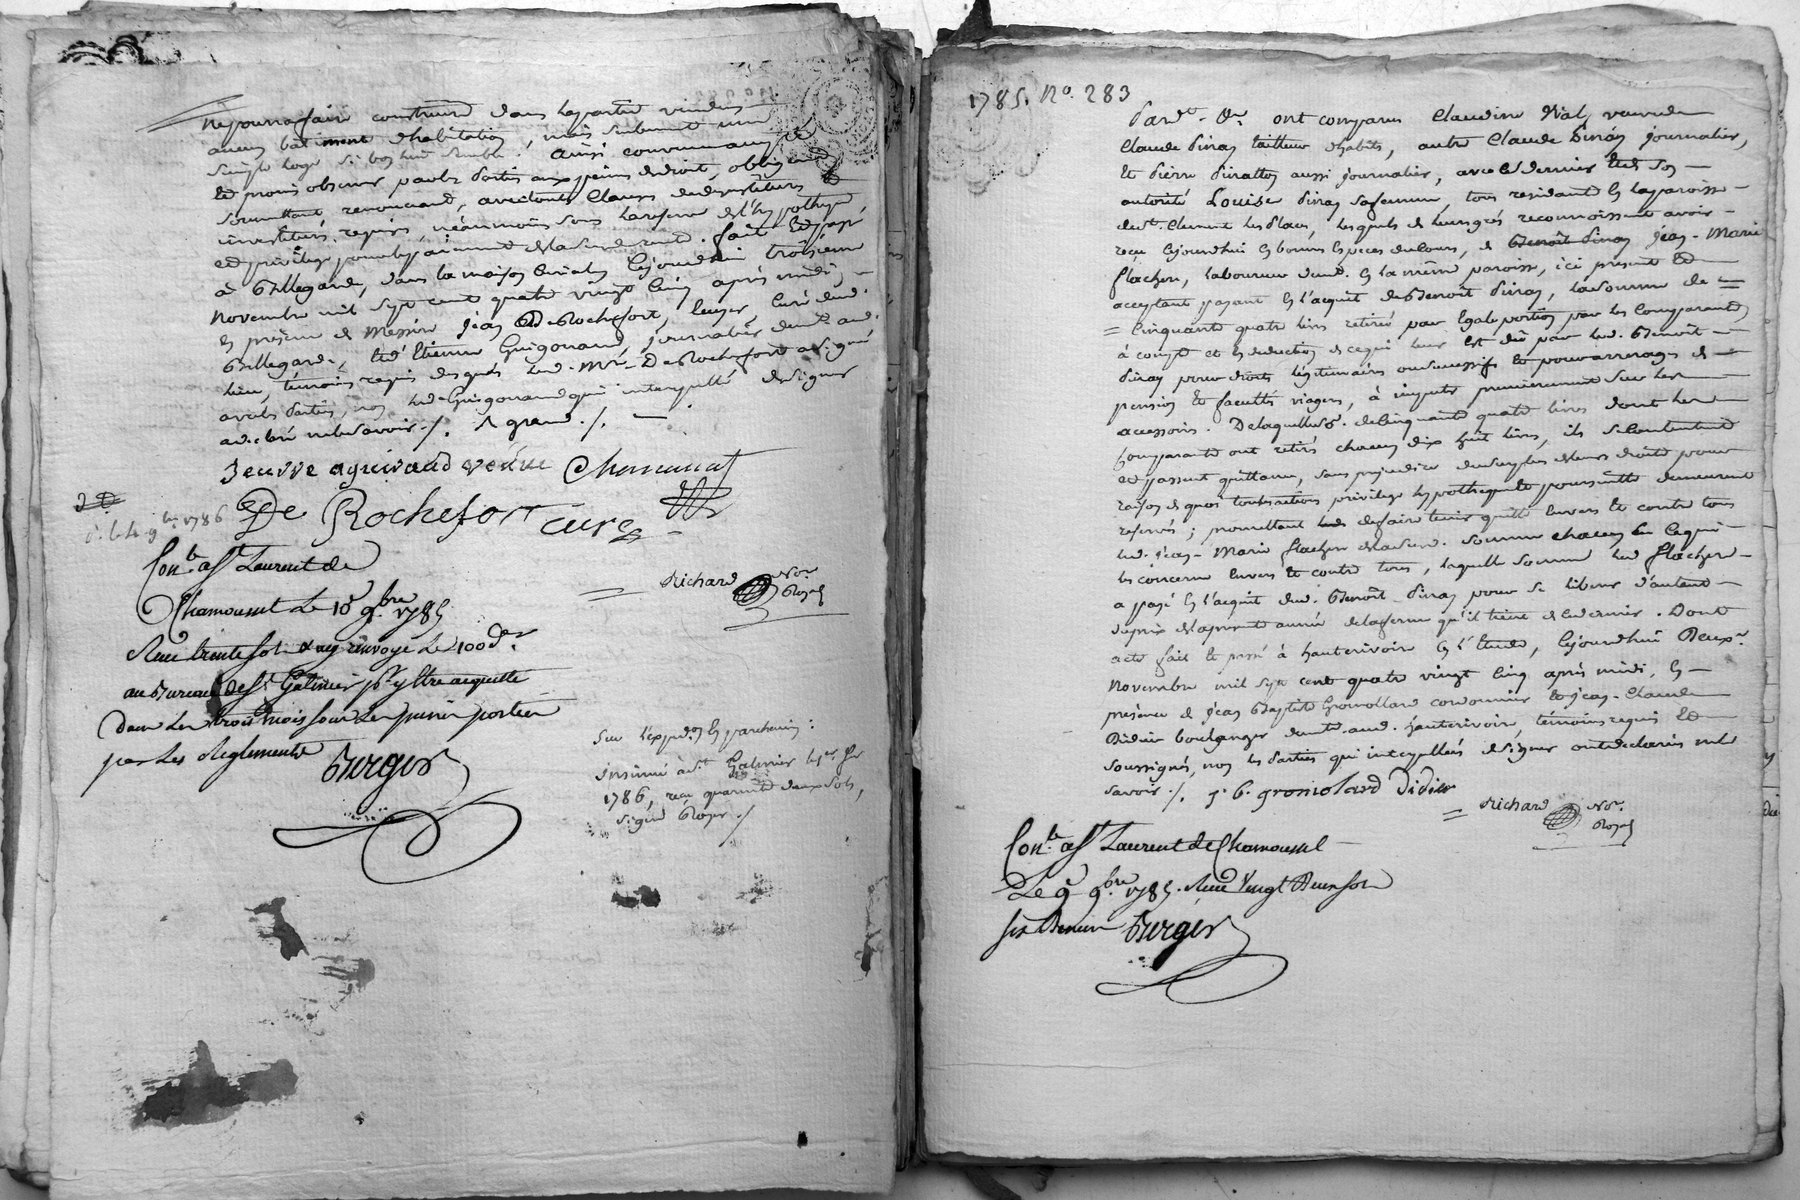 ne pourra faire construire dans la partie vendue
aucun batiment d'habitation, mais seulement une
simple loge si bon lui semble. Ainsi convenu
et promis observer par les parties aux peines de droit, obligeant
soumettant, renonceant, avec toutes clauses
investitures requises, néanmoins sous la reserve de l'hypotheque
et privilege pour le payement de la susd. rente. fait et passé
à Billegarde, dans la maison curiale, cejourdhui troisieme
novembre mil sept cent quatre vingt cinq après midi,
en présence de Messire Jean De Rochefort, curé dud.
Billegarde, et d'Etienne Guigonand, journalier
lieu, témoins requis desquels led. Mre. De Rochefort a signé
avec les parties, non led. Guigonand qui interpellé de signer
a declaré ne le savoir ./. A grand ./.
veuve Chamanat
De Rochefort curé
1786
Richard Nore. Royal
Con.le a St Laurent de
Chamousset le 10 9bre 1785
Reçu trente sols & ay renvoyé le 100 d.er
au Bureau de St. Galmier pr. y etre acquitté
dans les trois mois sous les peines portées
par les Reglements
Berger
Sur l'expédon. en parchemin :
insinué à St. Galmier le
1786, reçu quarante deux sols,
signé Royer ./
1785. No. 283
Pardt. &c. ont comparus Claudine Vial, veuve de
Claude Pinay tailleur d'habits, autre Claude Pinay journalier,
et Pierre Piratton aussi journalier, avec ce dernier et de son
autorité Louise Pinay sa femme, tous residants en la paroisse
de St. Clement les Places, lesquels de leurs grés reconnoissent avoir
reçu cejourdhui en bonnes especes de cours, de Benoît Pinay Jean-Marie
flachen, laboureur demt. en la même paroisse, ici present et
acceptant payant en l'acquit de Benoît Pinay, la somme de
cinquante quatre livres retirée par egale portion par les comparants
à compte et en deduction de ce qui leur est dû par led. Benoît
Pinay pour droits légitimaires ou successifs et pour arrerages de
pension et facultés viageres, à imputer premierement sur les
accessoires. De laquelle so. de cinquante quatre livres dont les
comparants ont retirés chacun dix huit livres, ils se contentent
et passent quittance, sans prejudice du surplus de leurs droits pour
raison de quoi toutes actions privilege hypotheque et poursuitte demeurent
reservés ; promettant de faire tenir quitte envers et contre tous
led. Jean-Marie flachen de la susd. somme chacun en ce qui
les concerne envers et contre tous, laquelle somme led. flachen
a payé en l'acquit dud. Benoît Pinay pour se liberer d'autant
du prix de la presente année de la ferme qu'il tient de ce dernier. Dont
acte fait et passé à hauterivoire en l'etude, cejourdhui deuxe.
novembre mil sept cent quatre vingt cinq après midi, en
présence de Jean Baptiste Gromollard cordonnier et Jean-Claude
Didier boulanger demts. aud. hauterivoire, témoins requis et
soussignés, non les parties qui interpellées de signer ont declarées ne le
savoir ./. J. b. gromolard Didier
Richard Nore. Royal
Con.le a St Laurent de Chamousset
Le 9 9bre 1785. Reçu Vingt Deux sols
six Deniers Berger